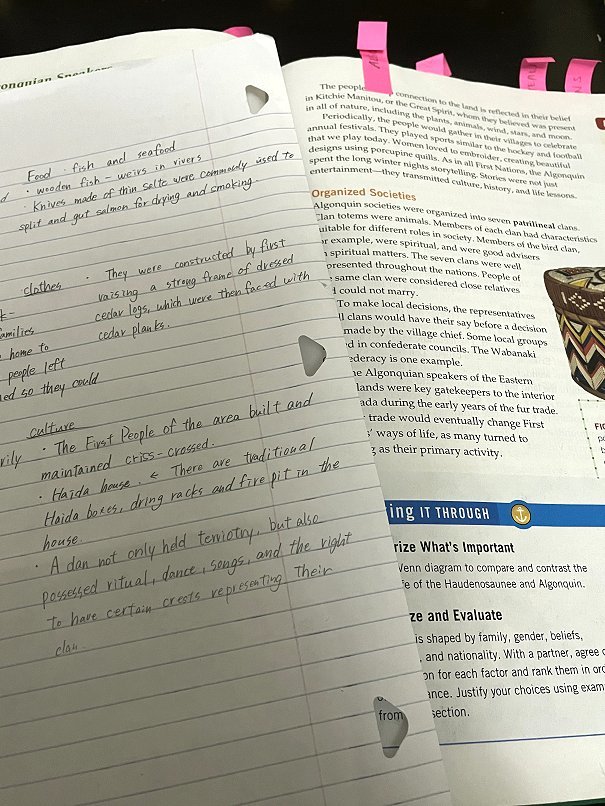 Food · fish and seafood
· wooden fish - weirs in rivers
· Knives made of thin salte were commonly used to
split and gut salmon for drying and smoking.
clothes · They were constructed by first
raising a strong frame of dressed
cedar logs, which were then faced with
cedar planks.
families
home to
people left
so they could
culture
· The First People of the area built and
maintained criss-crossed.
· Haida house. ← There are traditional
Haida boxes, dring racks and fire pit in the
house.
· A clan not only held terviotry, but also
possessed ritual, dance, songs, and the right
to have certain crests representing Their
clan.
from
The people connection to the land is reflected in their belief
in Kitchie Manitou, or the Great Spirit, whom they believed was present
in all of nature, including the plants, animals, wind, stars, and moon.
Periodically, the people would gather in their villages to celebrate
annual festivals. They played sports similar to the hockey and football
that we play today. Women loved to embroider, creating beautiful
designs using porcupine quills. As in all First Nations, the Algonquin
spent the long winter nights storytelling. Stories were not just
entertainment—they transmitted culture, history, and life lessons.
Organized Societies
Algonquin societies were organized into seven patrilineal clans.
Clan totems were animals. Members of each clan had characteristics
suitable for different roles in society. Members of the bird clan,
r example, were spiritual, and were good advisers
spiritual matters. The seven clans were well
presented throughout the nations. People of
same clan were considered close relatives
could not marry.
To make local decisions, the representatives
ll clans would have their say before a decision
made by the village chief. Some local groups
ed in confederate councils. The Wabanaki
ederacy is one example.
he Algonquian speakers of the Eastern
lands were key gatekeepers to the interior
ada during the early years of the fur trade.
trade would eventually change First
s' ways of life, as many turned to
g as their primary activity.
ing IT THROUGH
rize What's Important
Venn diagram to compare and contrast the
fe of the Haudenosaunee and Algonquin.
ze and Evaluate
is shaped by family, gender, beliefs,
, and nationality. With a partner, agree
on for each factor and rank them in ord
ance. Justify your choices using exam
section.
FI